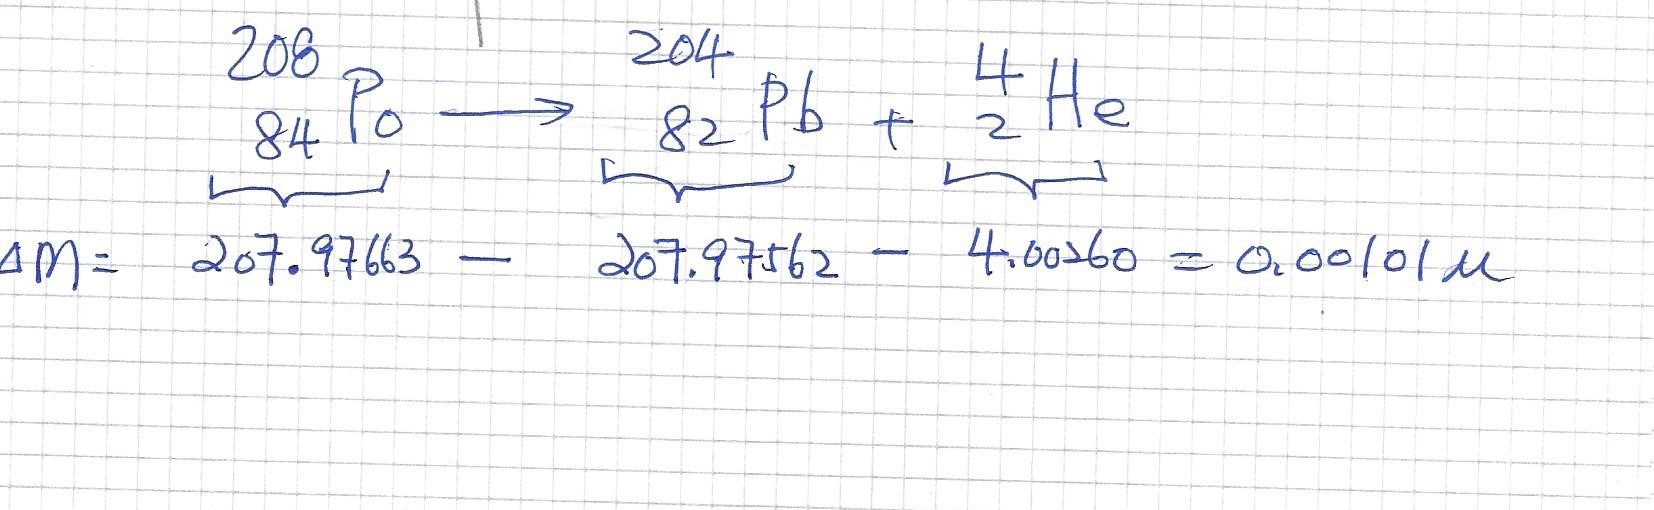 208 204 4
84 Po → 82 Pb + 2 He
ΔM = 207.97663 − 207.97562 − 4.00260 = 0.00101 u